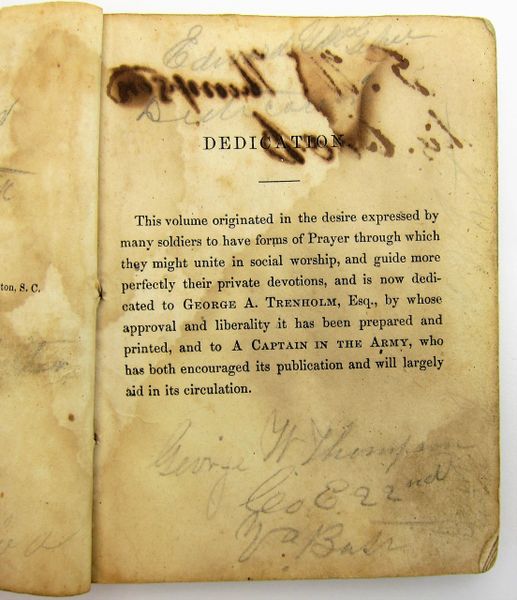 Edward
G. W. Thompson
Dedication
DEDICATION.
ton, S. C.
This volume originated in the desire expressed by
many soldiers to have forms of Prayer through which
they might unite in social worship, and guide more
perfectly their private devotions, and is now dedi-
cated to GEORGE A. TRENHOLM, Esq., by whose
approval and liberality it has been prepared and
printed, and to A CAPTAIN IN THE ARMY, who
has both encouraged its publication and will largely
aid in its circulation.
George W Thompson
Co E. 22nd
Va Batt